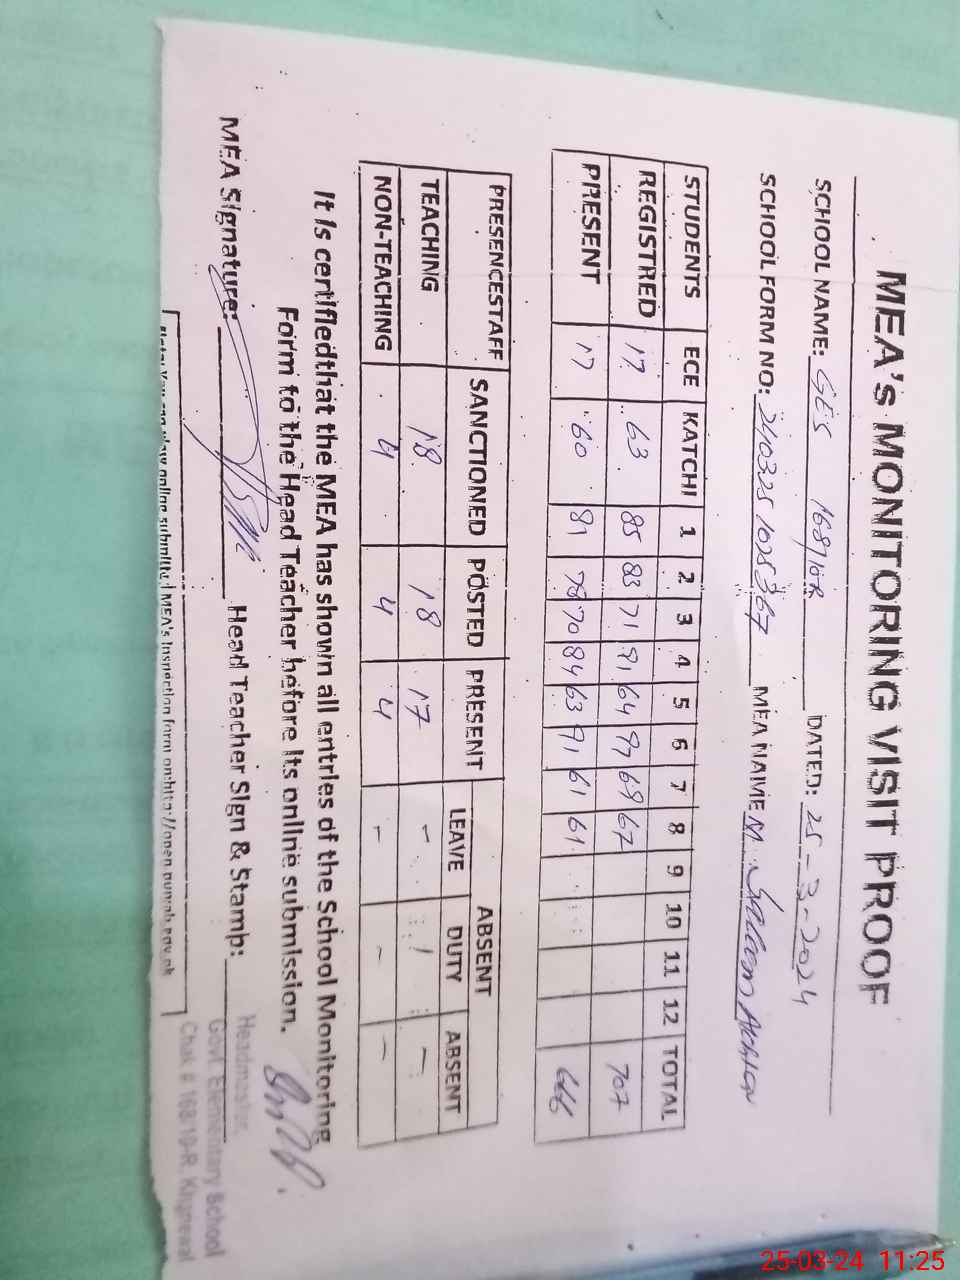 MEA's MONITORING VISIT PROOF
SCHOOL NAME: GES 168/10R DATED: 25-3-2024
SCHOOL FORM NO: MEA NAME M. Saleem Akhtar
STUDENTS ECE KATCHI 1 2 3 4 5 6 7 8 9 10 11 12 TOTAL
REGISTRED 17 63 85 83 71 91 64 97 69 67 707
PRESENT 17 60 81 78 70 84 63 91 61 61 666
PRESENCESTAFF SANCTIONED POSTED PRESENT ABSENT
LEAVE DUTY ABSENT
TEACHING 18 18 17 - 1 -
NON-TEACHING 4 4 4 - - -
It is certifiedthat the MEA has shown all entries of the School Monitoring
Form to the Head Teacher before its online submission.
MEA Signature: Head Teacher Sign & Stamp:
Headmaster,
Govt. Elementary School
Chak # 168/10-R, Khanewal
Note: You can view online submitted MEA's Inspection form on:http://open.punjab.gov.pk
25-03-24 11:25